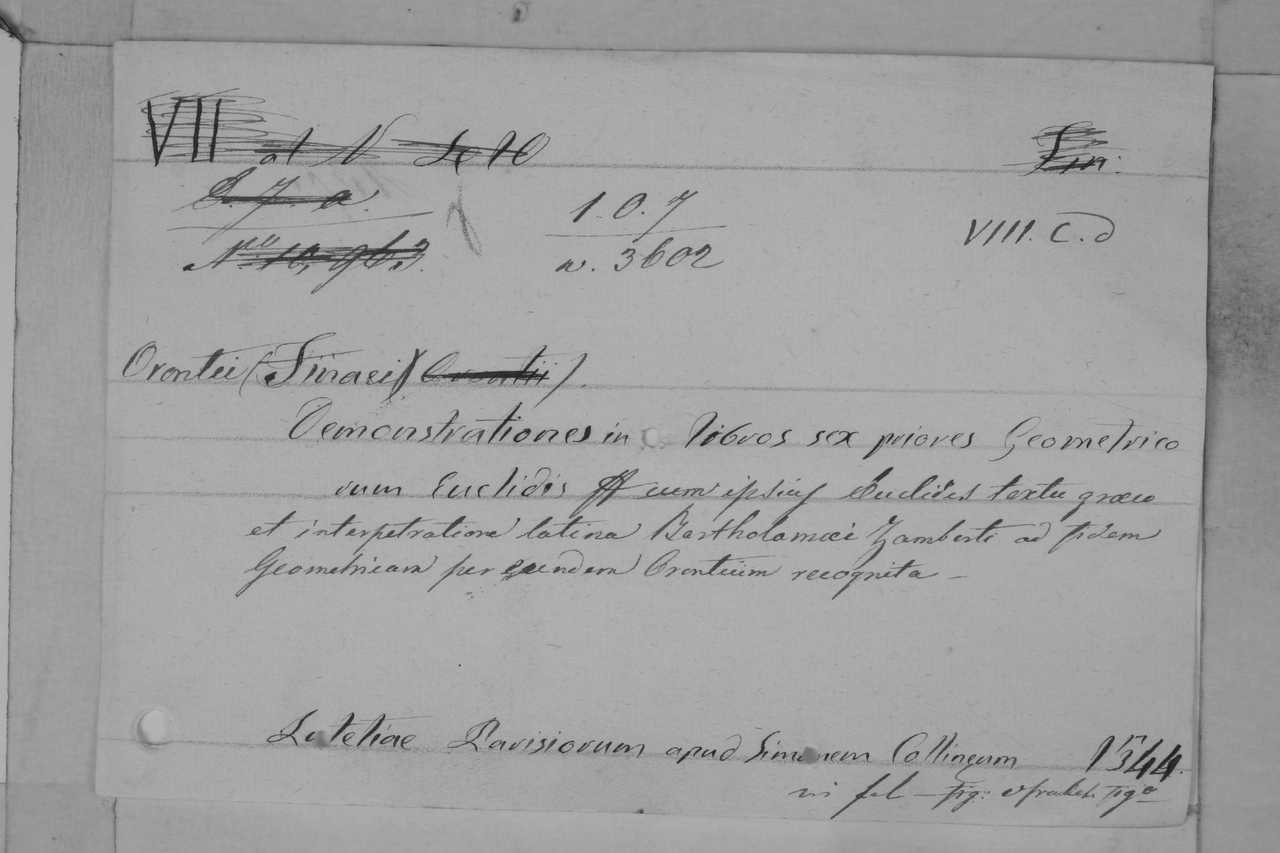 VII
Fin:
1.0.7
VIII. C. d
n. 3602
Orontii (Finaei) (Orontii).
Demonstrationes in libros sex priores Geometrico
rum Euclidis cum ipsius Euclidis textu græco
et interpretatione latina Bartholamæi Zamberti ad fidem
Geometricam per eundem Orontium recognita -
Lutetiae Parisiorum apud Simonem Collineum 1544.
in fol fig: